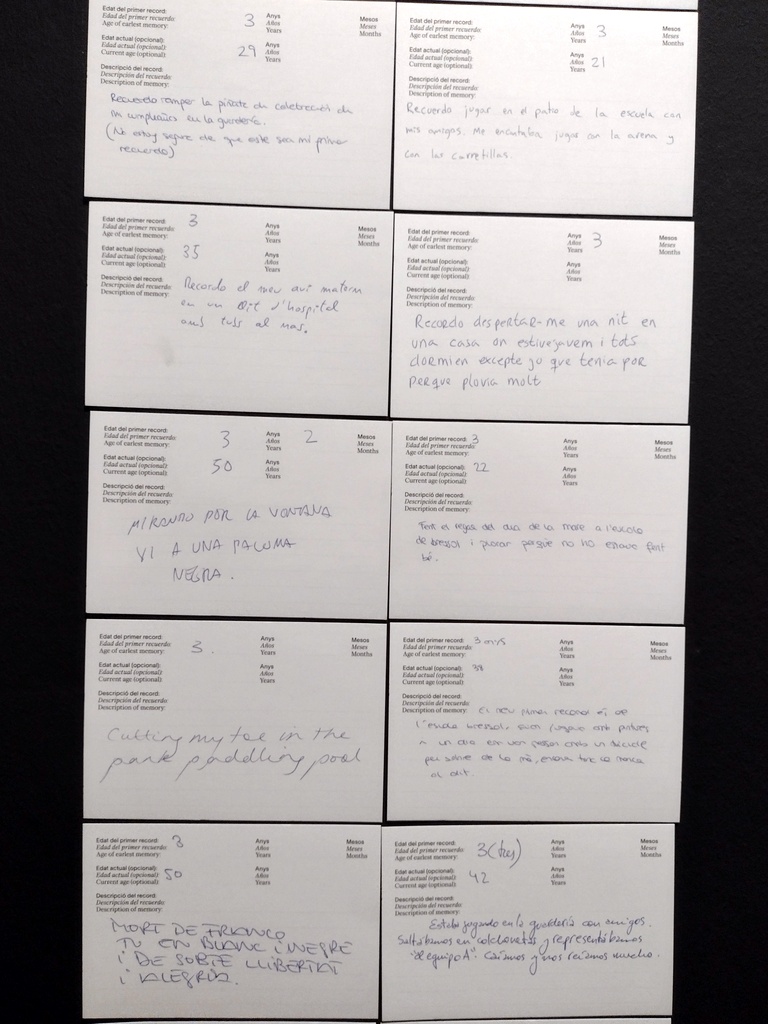 Edat del primer record:
Edad del primer recuerdo:
Age of earliest memory:
3
Anys
Años
Years
Mesos
Meses
Months
Edat actual (opcional):
Edad actual (opcional):
Current age (optional):
29
Anys
Años
Years
Descripció del record:
Descripción del recuerdo:
Description of memory:
Recuerdo romper la piñata de celebración de
mi cumpleaños en la guardería.
(No estoy segura de que este sea mi primer
recuerdo)
Edat del primer record:
Edad del primer recuerdo:
Age of earliest memory:
Anys
Años
Years
3
Mesos
Meses
Months
Edat actual (opcional):
Edad actual (opcional):
Current age (optional):
Anys
Años
Years
21
Descripció del record:
Descripción del recuerdo:
Description of memory:
Recuerdo jugar en el patio de la escuela con
mis amigos. Me encantaba jugar con la arena y
con las carretillas.
Edat del primer record:
Edad del primer recuerdo:
Age of earliest memory:
3
Anys
Años
Years
Mesos
Meses
Months
Edat actual (opcional):
Edad actual (opcional):
Current age (optional):
35
Anys
Años
Years
Descripció del record:
Descripción del recuerdo:
Description of memory:
Recordo el meu avi matern
en un llit d'hospital
amb tubs al nas.
Edat del primer record:
Edad del primer recuerdo:
Age of earliest memory:
Anys
Años
Years
3
Mesos
Meses
Months
Edat actual (opcional):
Edad actual (opcional):
Current age (optional):
Anys
Años
Years
Descripció del record:
Descripción del recuerdo:
Description of memory:
Recordo despertar-me una nit en
una casa on estiuejavem i tots
dormien excepte jo que tenia por
perque plovia molt
Edat del primer record:
Edad del primer recuerdo:
Age of earliest memory:
3
Anys
Años
Years
2
Mesos
Meses
Months
Edat actual (opcional):
Edad actual (opcional):
Current age (optional):
50
Anys
Años
Years
Descripció del record:
Descripción del recuerdo:
Description of memory:
MIRANDO POR LA VENTANA
VI A UNA PALOMA
NEGRA.
Edat del primer record:
Edad del primer recuerdo:
Age of earliest memory:
3
Anys
Años
Years
Mesos
Meses
Months
Edat actual (opcional):
Edad actual (opcional):
Current age (optional):
22
Anys
Años
Years
Descripció del record:
Descripción del recuerdo:
Description of memory:
Fent el regal del dia de la mare a l'escola
de bressol i plorar perquè no ho estava fent
bé.
Edat del primer record:
Edad del primer recuerdo:
Age of earliest memory:
3.
Anys
Años
Years
Mesos
Meses
Months
Edat actual (opcional):
Edad actual (opcional):
Current age (optional):
Anys
Años
Years
Descripció del record:
Descripción del recuerdo:
Description of memory:
Cutting my toe in the
park paddling pool
Edat del primer record:
Edad del primer recuerdo:
Age of earliest memory:
3 anys
Anys
Años
Years
Mesos
Meses
Months
Edat actual (opcional):
Edad actual (opcional):
Current age (optional):
38
Anys
Años
Years
Descripció del record:
Descripción del recuerdo:
Description of memory:
El meu primer record és de
l'escola bressol, quan jugava amb
un dia em van passar amb un bicicle
per sobre de la mà, encara tinc la marca
al dit.
Edat del primer record:
Edad del primer recuerdo:
Age of earliest memory:
3
Anys
Años
Years
Mesos
Meses
Months
Edat actual (opcional):
Edad actual (opcional):
Current age (optional):
50
Anys
Años
Years
Descripció del record:
Descripción del recuerdo:
Description of memory:
MORT DE FRANCO
TV EN BLANC i NEGRE
i DE SOBTE LLIBERTAT
i ALEGRIA.
Edat del primer record:
Edad del primer recuerdo:
Age of earliest memory:
3 (tres)
Anys
Años
Years
Mesos
Meses
Months
Edat actual (opcional):
Edad actual (opcional):
Current age (optional):
42
Anys
Años
Years
Descripció del record:
Descripción del recuerdo:
Description of memory:
Estaba jugando en la guardería con amigos.
Saltábamos en colchonetas y representábamos
"el equipo A". Caíamos y nos reíamos mucho.